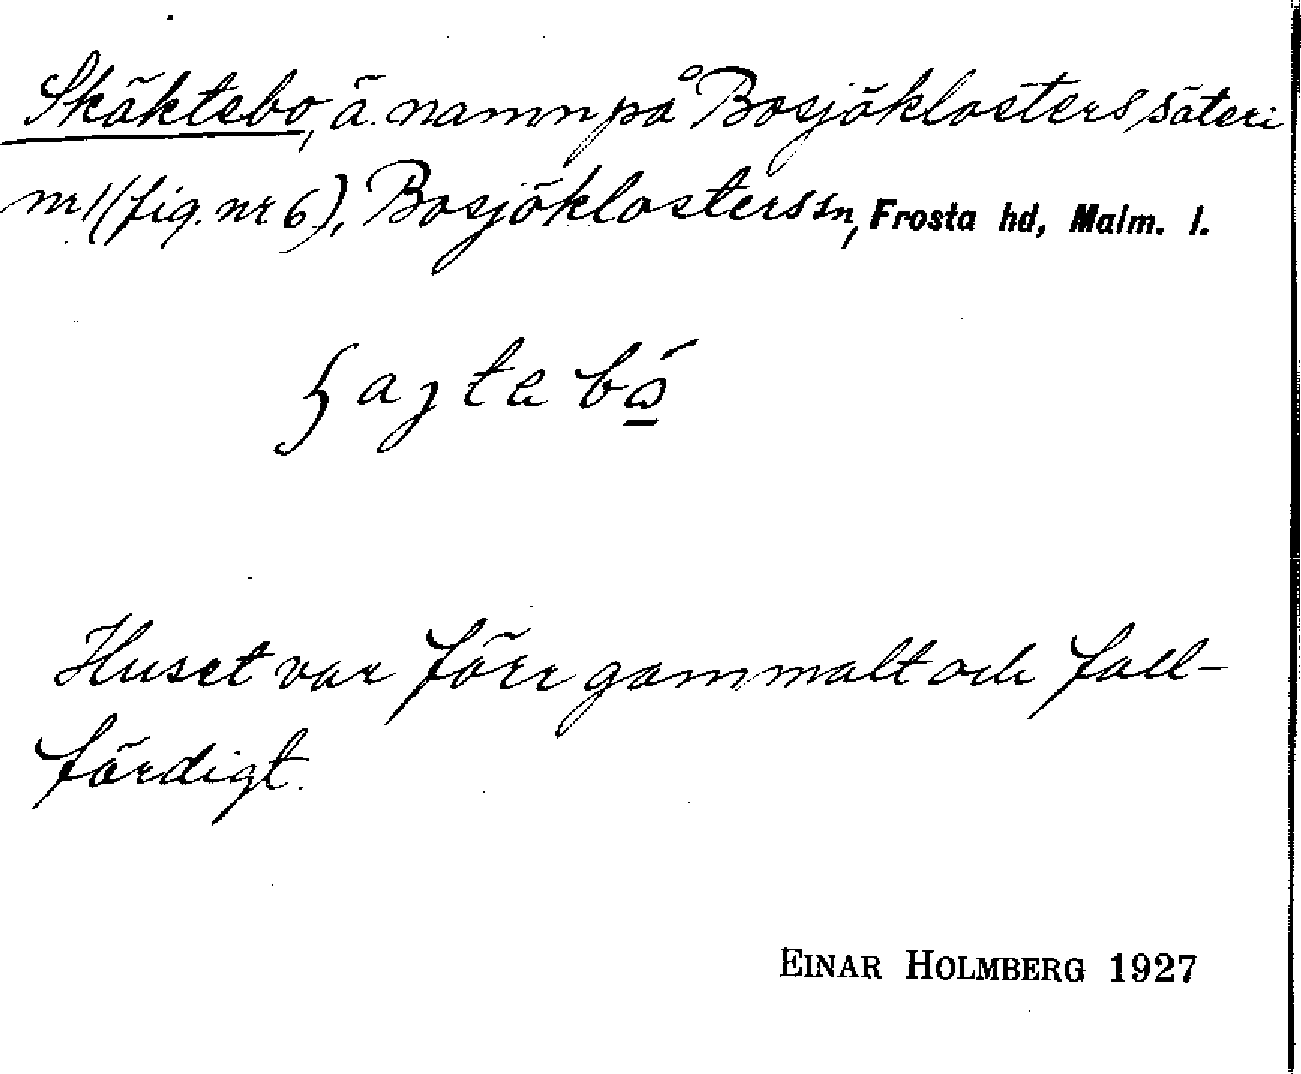 Skäktebo, ä. namn på Bosjöklosters säteri
nr 1 (fig. nr 6), Bosjöklosters sn, Frosta hd, Malm. l.
Huset var förr gammalt och fall-
färdigt.
EINAR HOLMBERG 1927